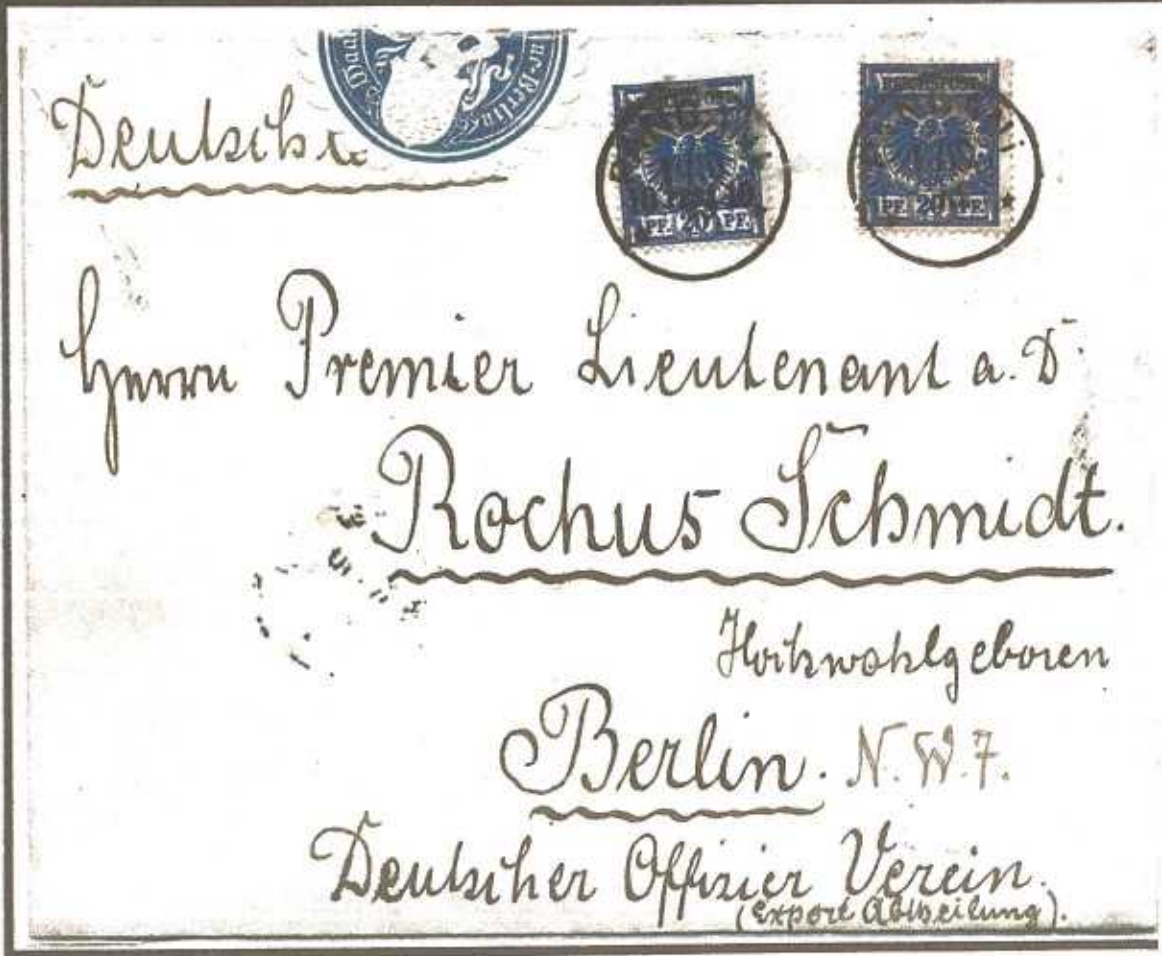 Deutsche
PF. 20 PF.
PF. 20 PF.
Herrn Premier Lieutenant a. D.
Rochus Schmidt.
Hochwohlgeboren
Berlin. N. W. 7.
Deutscher Offizier Verein.
(Export Abtheilung).